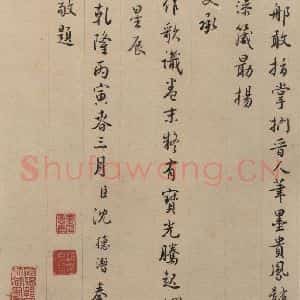 那敢指掌捫晉人筆墨貴風韻
藻箴勗揚
文承
作歌識卷末髣有寶光騰起
星辰
乾隆丙寅春三月臣沈德潛奉
敬題
Shufawang.CN